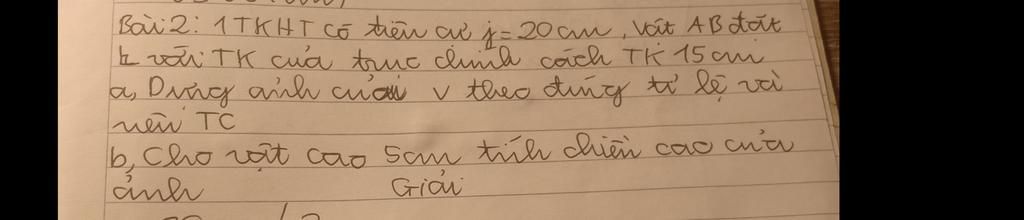 Bài 2: 1 TKHT có tiêu cự f = 20cm, Vật AB đặt
⊥ với TK của trục chính cách TK 15cm
a, Dựng ảnh của v theo đúng tỉ lệ và
nêu TC
b, Cho vật cao 5cm tính chiều cao của
ảnh Giải